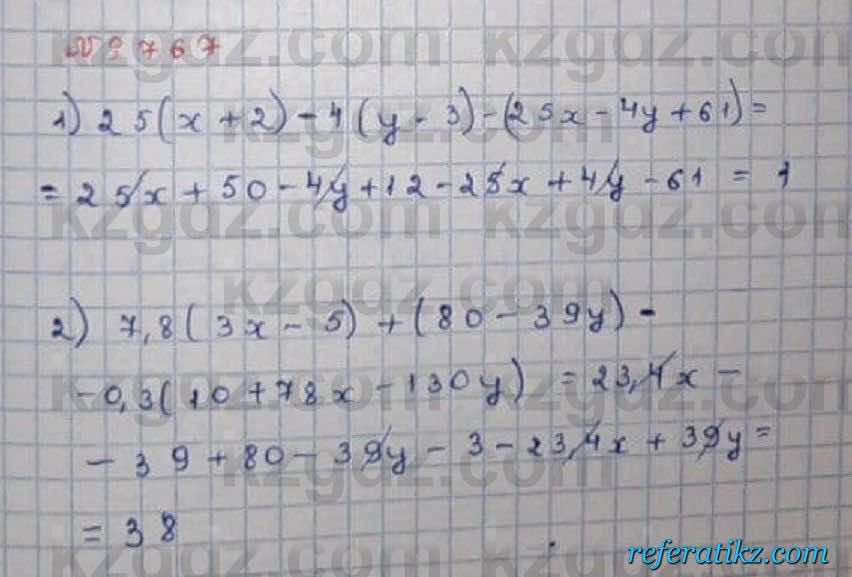 № 767
1) 25(x + 2) - 4(y - 3) - (25x - 4y + 61) =
= 25x + 50 - 4y + 12 - 25x + 4y - 61 = 1
2) 7,8(3x - 5) + (80 - 39y) -
- 0,3(10 + 78x - 130y) = 23,4x -
- 39 + 80 - 39y - 3 - 23,4x + 39y =
= 38
kzgdz.com
referatikz.com